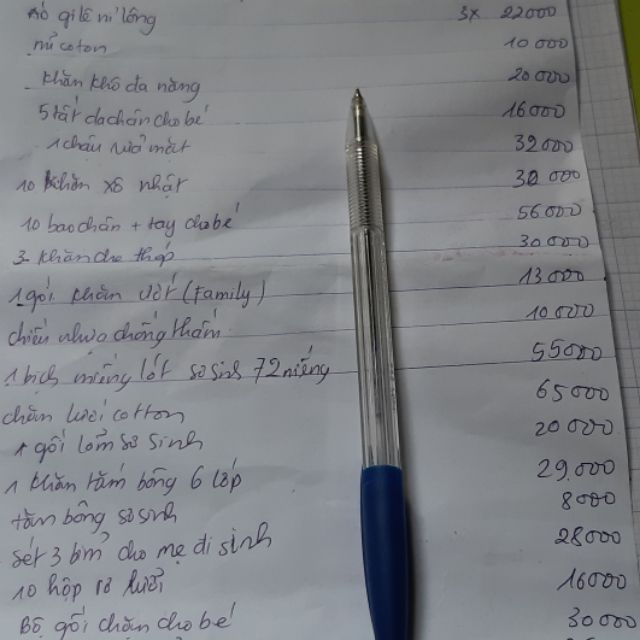 Áo gi lê ni lông 3x 22000
mũ coton 10 000
khăn khô đa năng 20000
5 tất da chân cho bé 16000
1 chậu rửa mặt 32000
10 khăn xô nhật 32 000
10 bao chân + tay cho bé 56 000
3 khăn che thóp 30000
1 gói khăn ướt (Family) 13 000
chiếu nhựa chống thấm 10000
1 bịch miếng lót sơ sinh 72 miếng 55000
chăn lưới cotton 65000
1 gối lõm sơ sinh 20 000
1 khăn tắm bông 6 lớp 29.000
tăm bông sơ sinh 8000
sét 3 bỉm cho mẹ đi sinh 28000
10 hộp rơ lưỡi 16000
Bộ gối chăn cho bé 30000